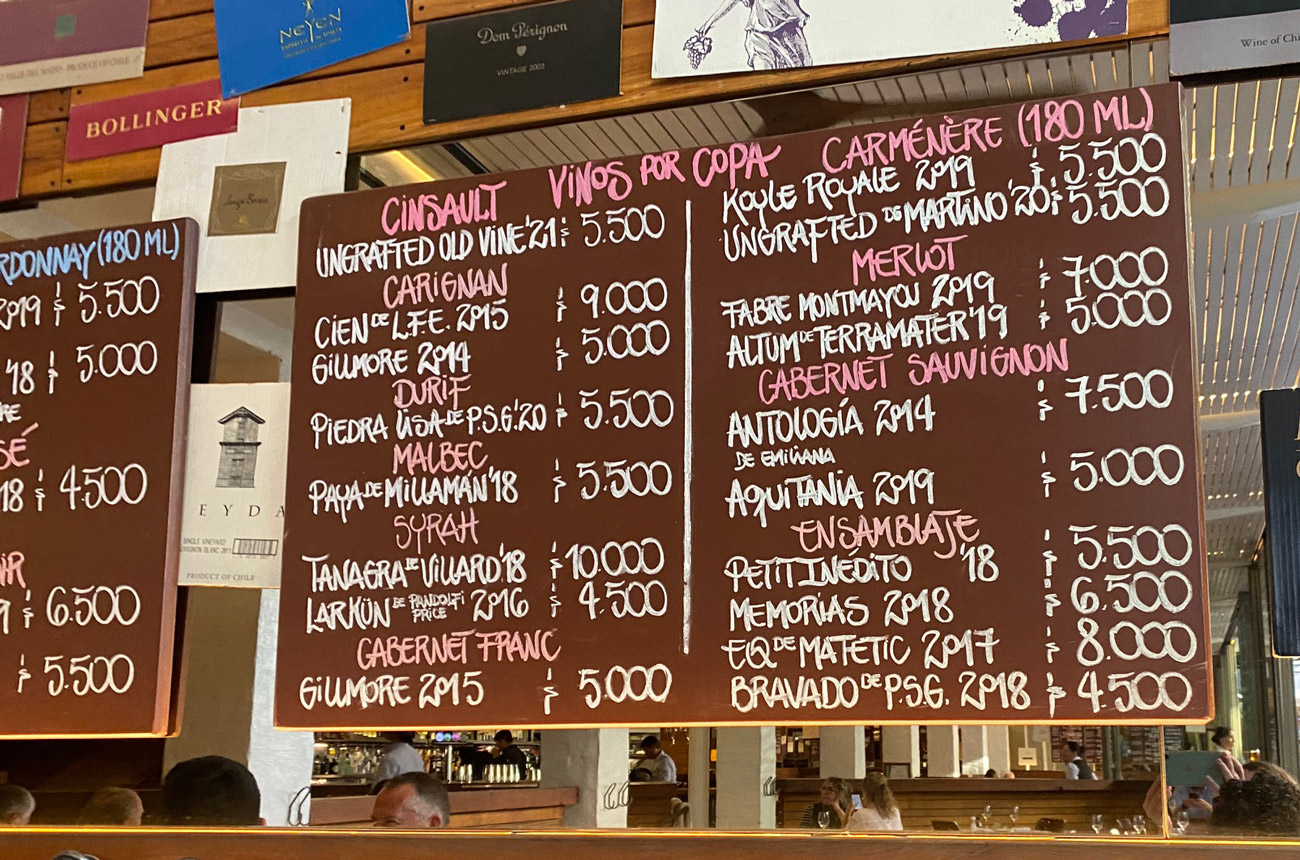 NEYEN
ESPÍRITU DE APALTA
Dom Pérignon
VINTAGE 2003
Wine of Chi
BOLLINGER
PRODUCE OF CHILE
RDONNAY (180 ML)
2019 $ 5.500
'18 $ 5.000
RE
SÉ
18 $ 4.500
IR
9 $ 6.500
$ 5.500
EYDA
SINGLE VINEYARD
PRODUCT OF CHILE
VINOS POR COPA
CINSAULT
UNGRAFTED OLD VINE '21 $ 5.500
CARIGNAN
CIEN DE L.F.E. 2015 $ 9.000
GILLMORE 2014 $ 5.000
DURIF
PIEDRA LISA DE P.S.G. '20 $ 5.500
MALBEC
PAYA DE MILLAMAN '18 $ 5.500
SYRAH
TANAGRA DE VILLARD '18 $ 10.000
LARKÜN DE PANDOLFI PRICE 2016 $ 4.500
CABERNET FRANC
GILLMORE 2015 $ 5.000
CARMÉNÈRE (180 ML)
KOYLE ROYALE 2019 $ 5.500
UNGRAFTED DE MARTINO '20 $ 5.500
MERLOT
FABRE MONTMAYOU 2019 $ 7.000
ALTUM DE TERRAMATER '19 $ 5.000
CABERNET SAUVIGNON
ANTOLOGÍA 2014 $ 7.500
DE EMILIANA
AQUITANIA 2019 $ 5.000
ENSAMBLAJE
PETIT INÉDITO '18 $ 5.500
MEMORIAS 2018 $ 6.500
EQ DE MATETIC 2017 $ 8.000
BRAVADO DE P.S.G. 2018 $ 4.500